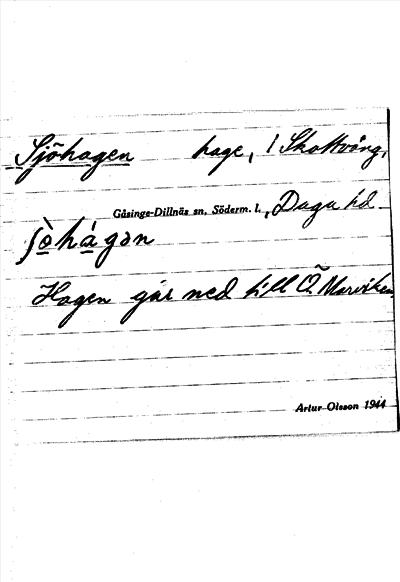 Sjöhagen hage, / Skottvång,
Gåsinge-Dillnäs sn, Söderm. l., Daga hd
ʃò̱há̱gən
Hagen går ned till Ö. Marviken
Artur Olsson 1944